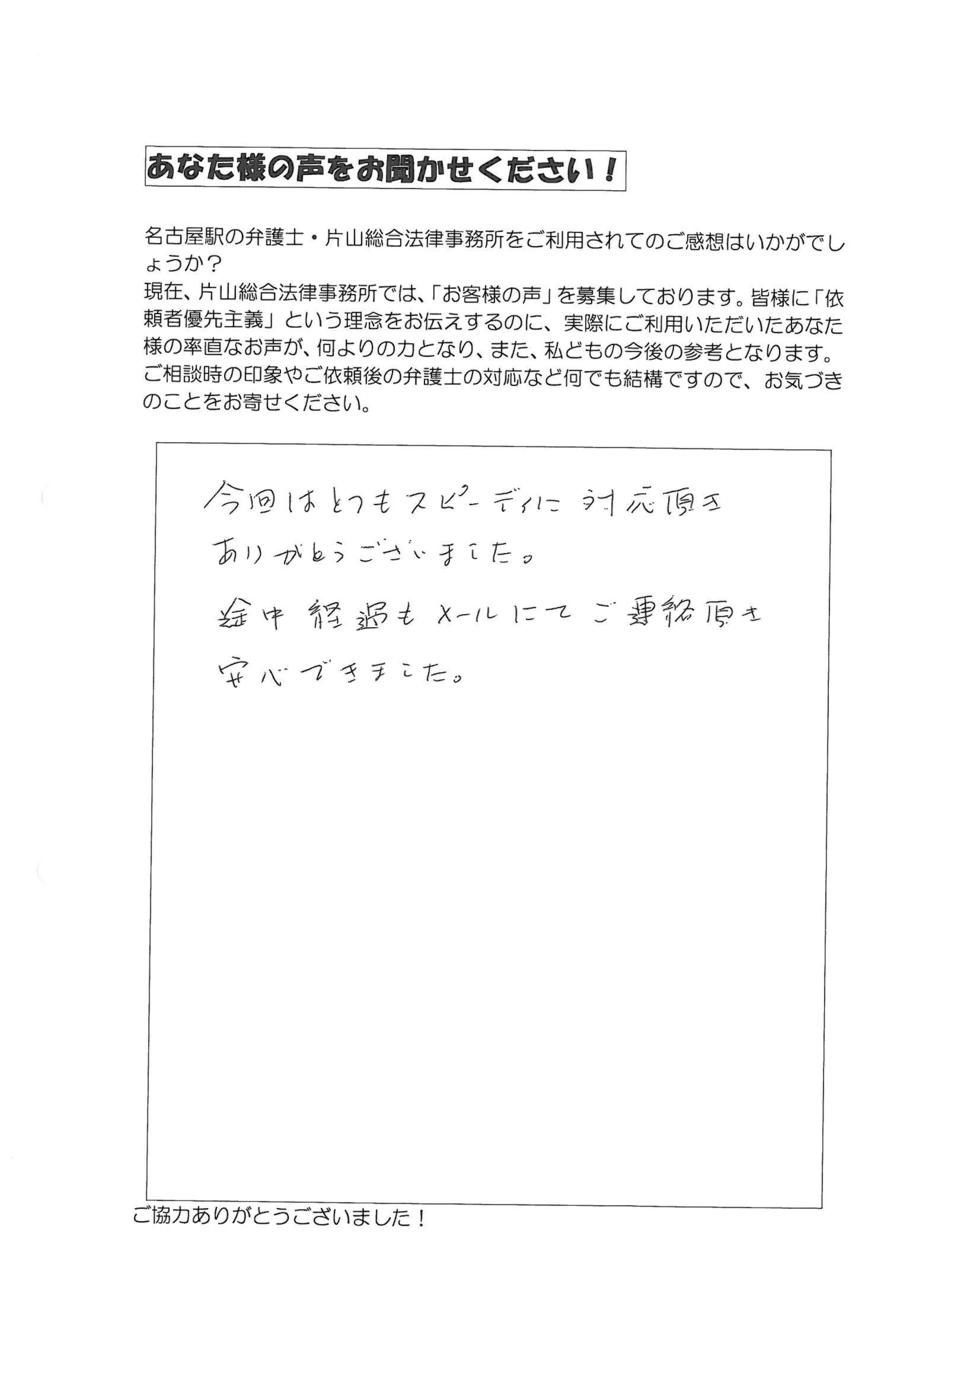 あなた様の声をお聞かせください！
名古屋駅の弁護士・片山総合法律事務所をご利用されてのご感想はいかがでし
ょうか？
現在、片山総合法律事務所では、「お客様の声」を募集しております。皆様に「依
頼者優先主義」という理念をお伝えするのに、実際にご利用いただいたあなた
様の率直なお声が、何よりの力となり、また、私どもの今後の参考となります。
ご相談時の印象やご依頼後の弁護士の対応など何でも結構ですので、お気づき
のことをお寄せください。
今回はとてもスピーディに対応頂き
ありがとうございました。
途中経過もメールにてご連絡頂き
安心できました。
ご協力ありがとうございました！